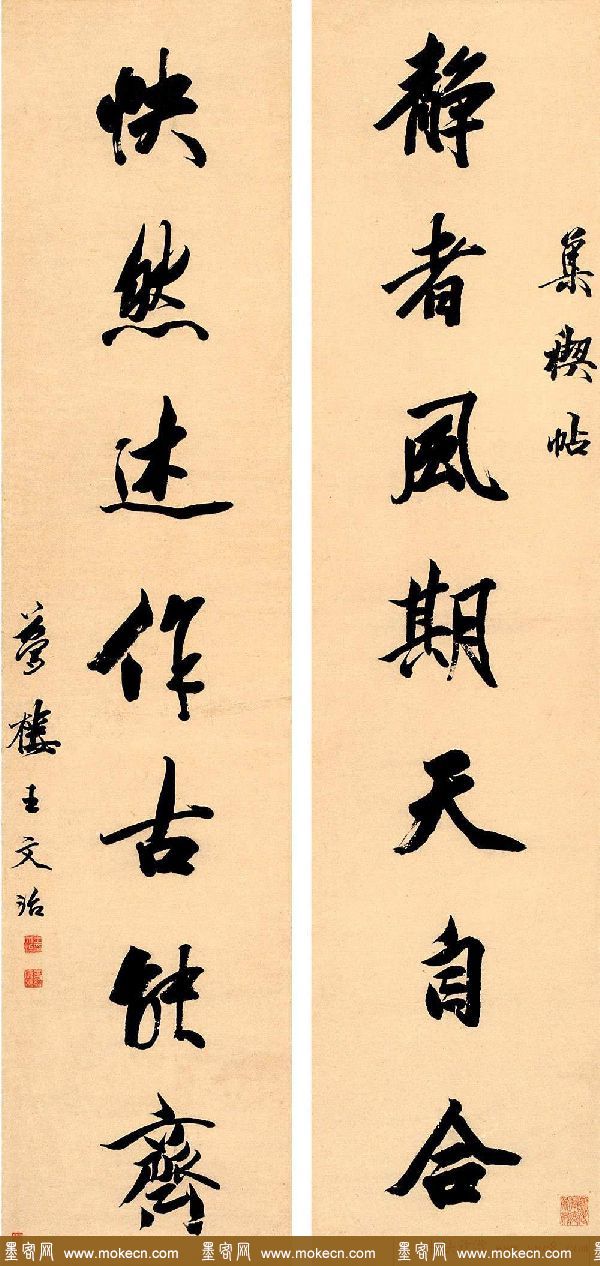 集禊帖
静者風期天自合
快然述作古能齊
夢樓王文治
墨客网 www.mokecn.com 墨客网 www.mokecn.com 墨客网 www.mokecn.com 墨客网